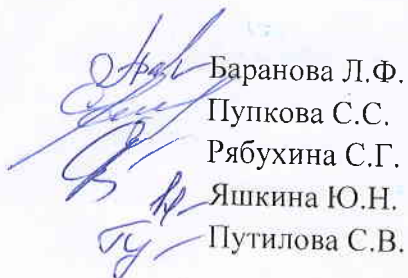 Баранова Л.Ф.
Пупкова С.С.
Рябухина С.Г.
Яшкина Ю.Н.
Путилова С.В.